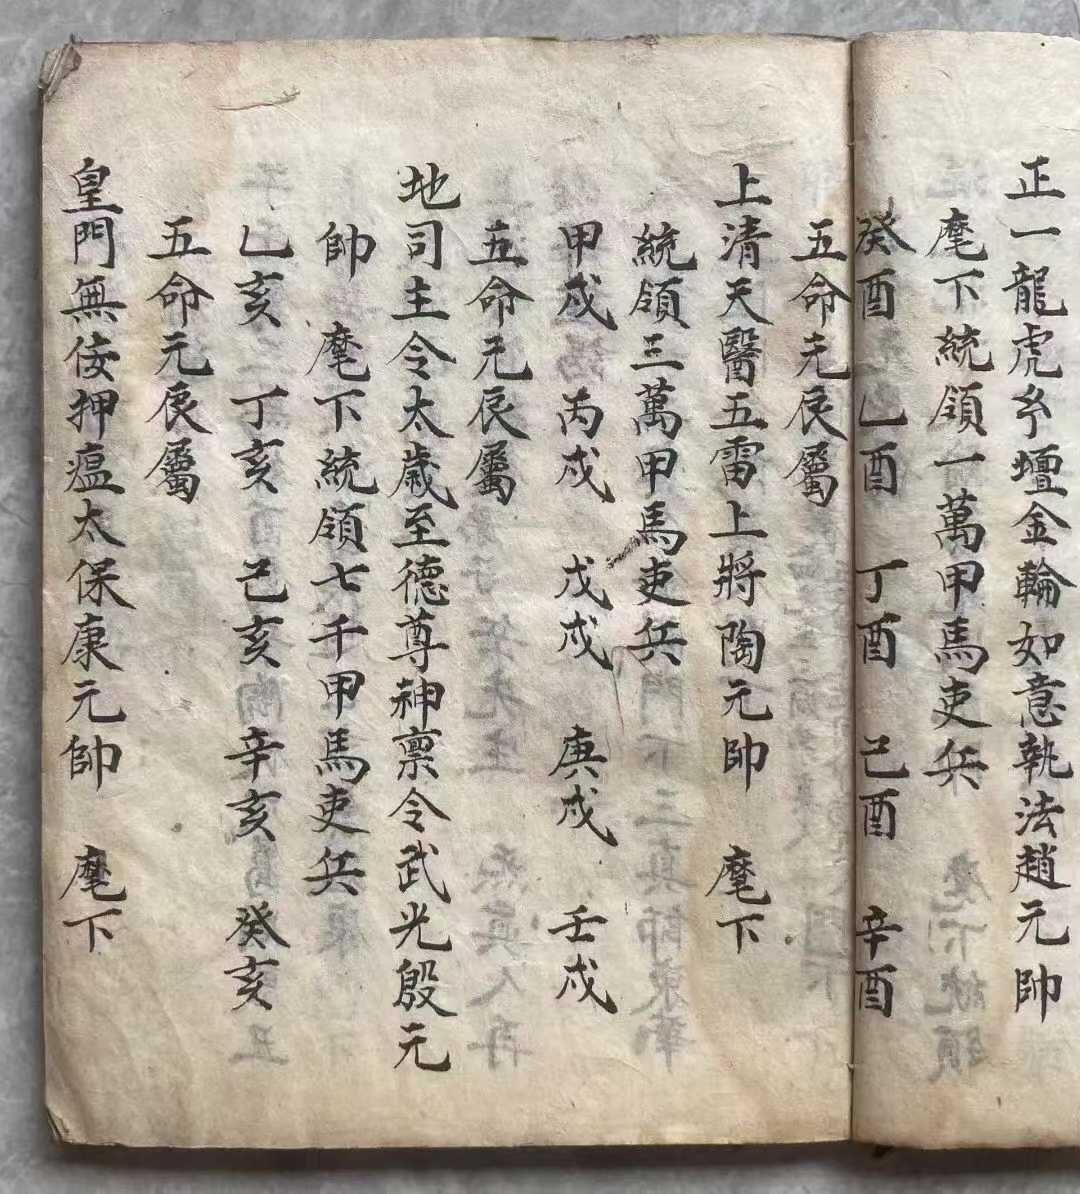 正一龍虎玄壇金輪如意執法趙元帥
麾下統領一萬甲馬吏兵
癸酉 乙酉 丁酉 己酉 辛酉
五命元辰屬
上清天醫五雷上將陶元帥 麾下
統領三萬甲馬吏兵
甲戌 丙戌 戊戌 庚戌 壬戌
五命元辰屬
地司主令太歲至德尊神禀令武光殷元
帥 麾下統領七千甲馬吏兵
乙亥 丁亥 己亥 辛亥 癸亥
五命元辰屬
皇門無佞押瘟太保康元帥 麾下